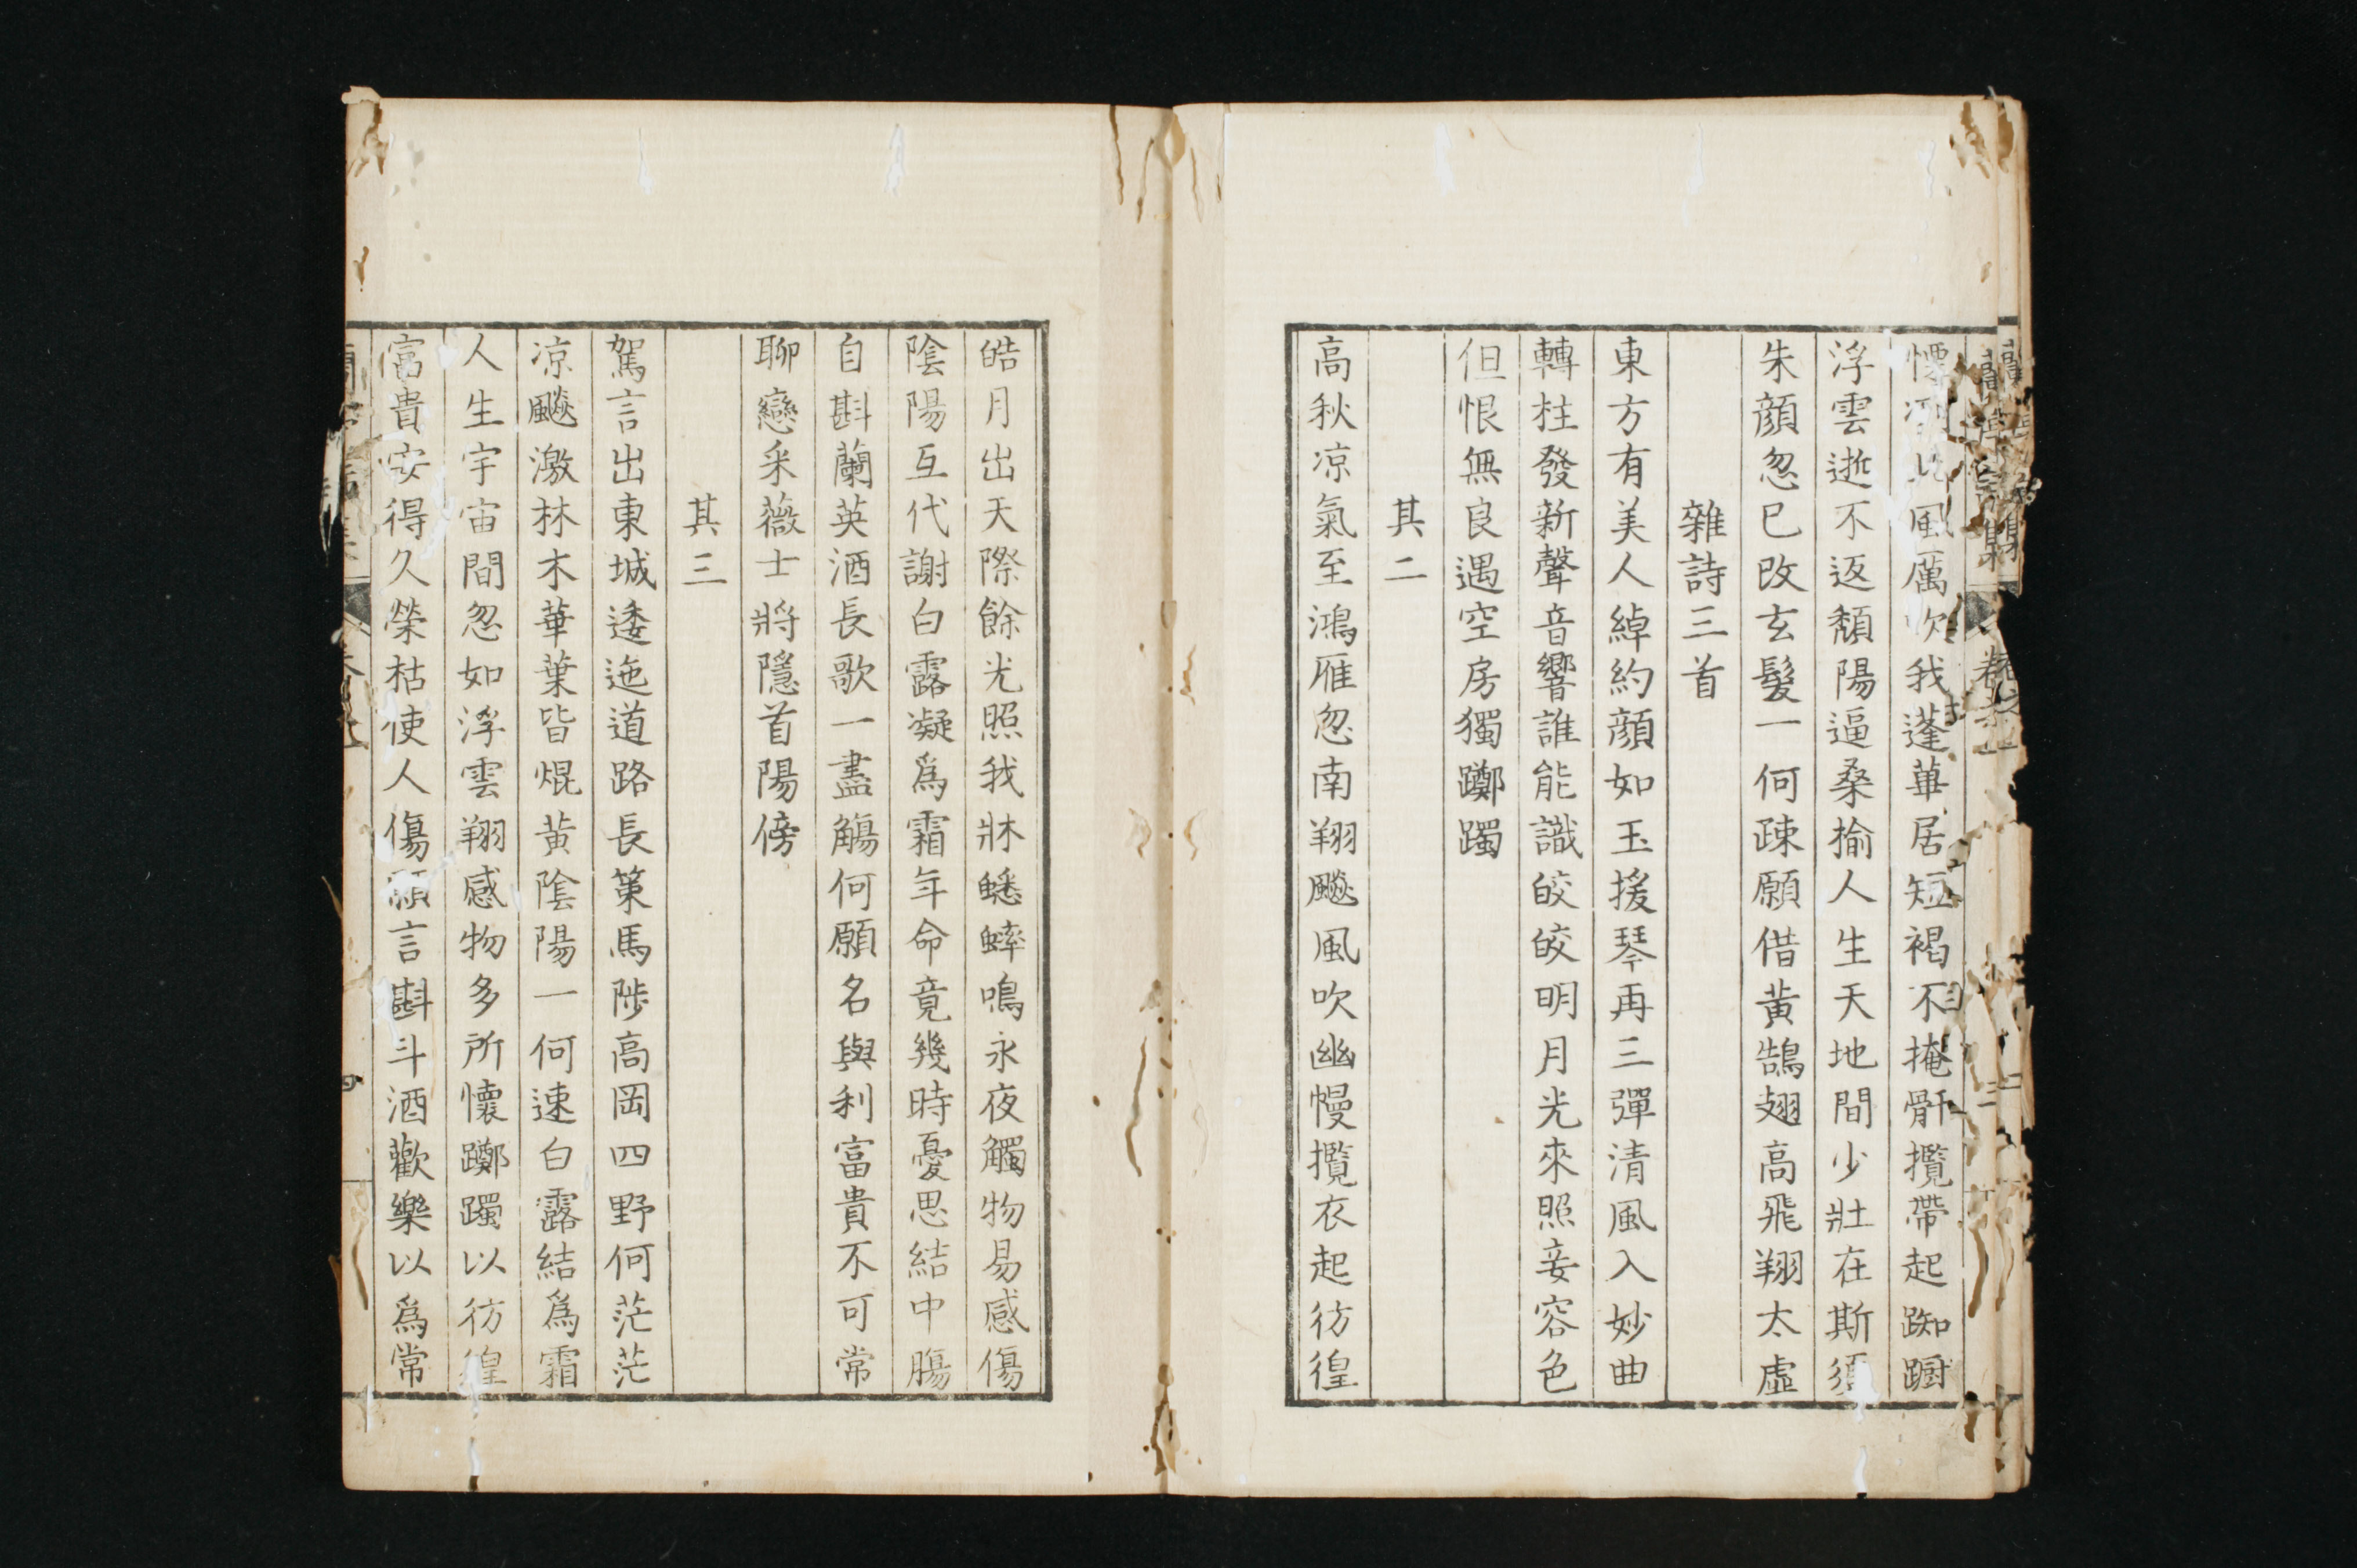 慄冽北風厲吹我蓬蓽居短褐不掩骭攬帶起踟躕
浮雲逝不返頹陽逼桑榆人生天地間少壯在斯須
朱顔忽已改玄髮一何踈願借黃鵠翅高飛翔太虛
雜詩三首
東方有美人綽約顔如玉援琴再三彈清風入妙曲
轉柱發新聲音響誰能識皎皎明月光來照妾容色
但恨無良遇空房獨躑躅
其二
高秋凉氣至鴻雁忽南翔飈風吹幽幔攬衣起彷徨
皓月出天際餘光照我牀蟋蟀鳴永夜觸物易感傷
陰陽互代謝白露凝爲霜年命竟幾時憂思結中腸
自斟蘭英酒長歌一盡觴何願名與利富貴不可常
聊戀采薇士將隱首陽傍
其三
駕言出東城逶迤道路長策馬陟高岡四野何茫茫
凉飈激林木華葉皆焜黃陰陽一何速白露結爲霜
人生宇宙間忽如浮雲翔感物多所懷躑躅以彷徨
富貴安得久榮枯使人傷願言斟斗酒歡樂以爲常
四